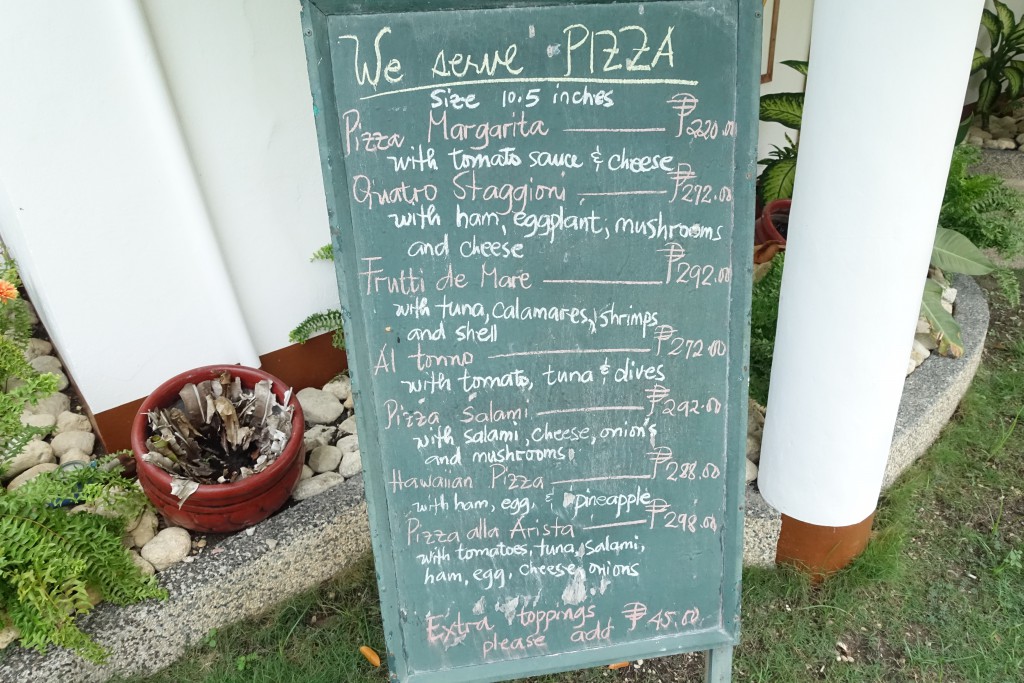 We serve PIZZA
Size 10.5 inches
Pizza Margarita ₱220.00
with tomato sauce & cheese
Quatro Staggioni ₱272.00
with ham, eggplant, mushrooms
and cheese
Frutti de Mare ₱292.00
with tuna, calamares, shrimps
and shell
Al tonno ₱272.00
with tomato, tuna & olives
Pizza Salami ₱292.00
with salami, cheese, onion's
and mushrooms
Hawaiian Pizza ₱288.00
with ham, egg, & pineapple
Pizza alla Arista ₱298.00
with tomatoes, tuna, salami,
ham, egg, cheese, onions
Extra toppings ₱45.00
please add